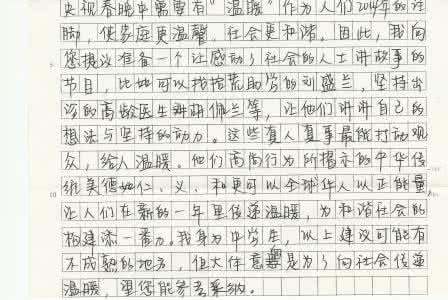 央视春晚中需要有"温暖"作为人们2014年的注
脚，使家庭更温馨，社会更和谐。因此，我向
您提议准备一个让感动了社会的人士讲故事的
节目，比如可以找拾荒助学的刘盛兰，坚持出
诊的高龄医生胡佩兰等，让他们讲讲自己的
想法与坚持的动力。这些真人真事最能打动观
众，给人温暖。他们高尚行为所揭示的中华传
统美德如仁、义、和更可以全球华人以正能量
让人们在新的一年里传递温暖，为和谐社会的
构建添一番力。我身为中学生，以上建议可能有
不成熟的地方，但大体意是为了向社会传递
温暖，望您能参考采纳。